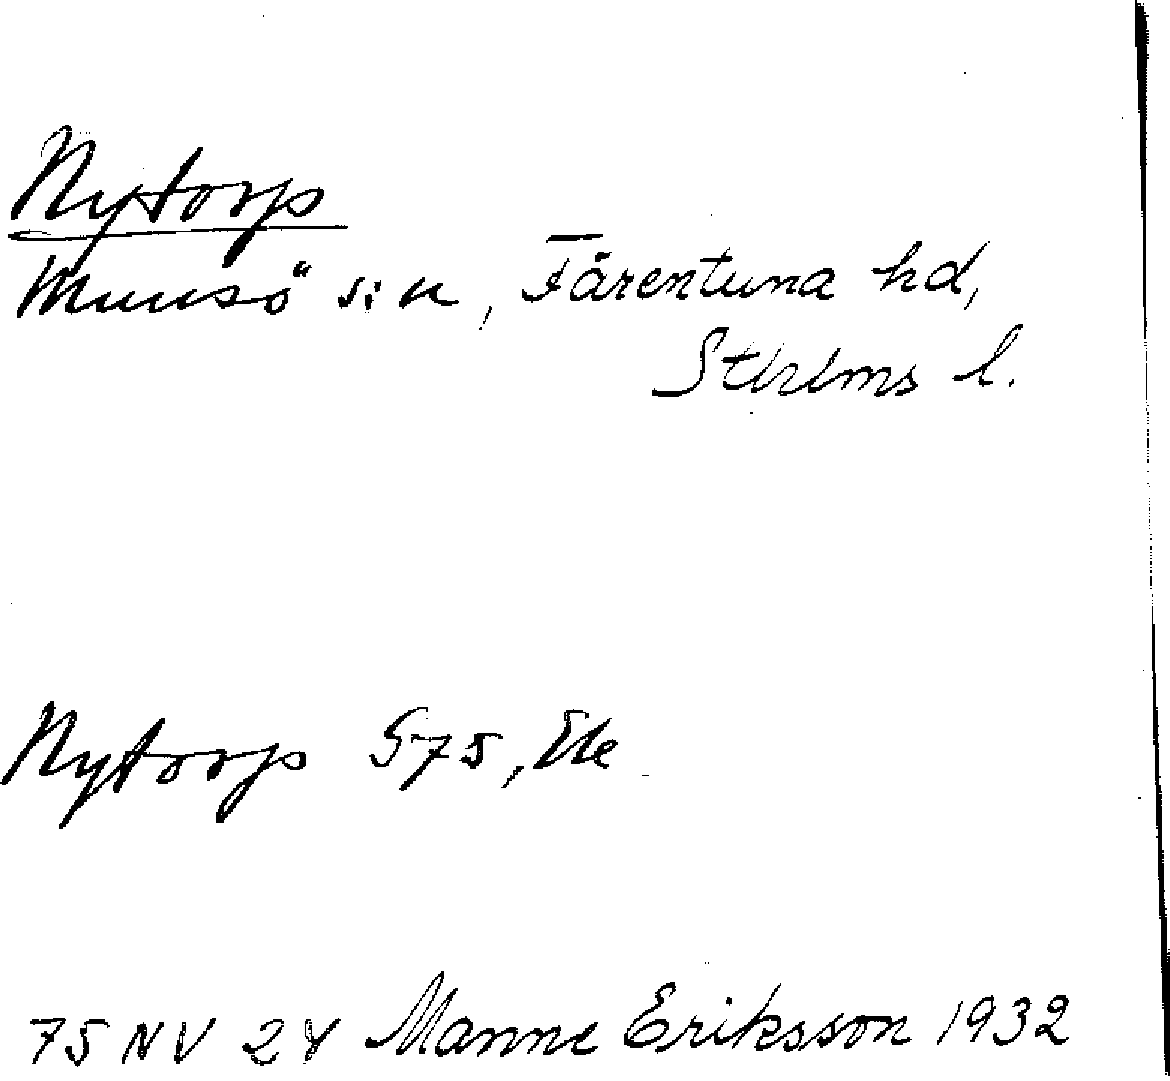 Nytorp
Munsö s:n, Färentuna hd,
Sthlms l.
Nytorp G75, Ek
75 NV 24 Manne Eriksson 1932